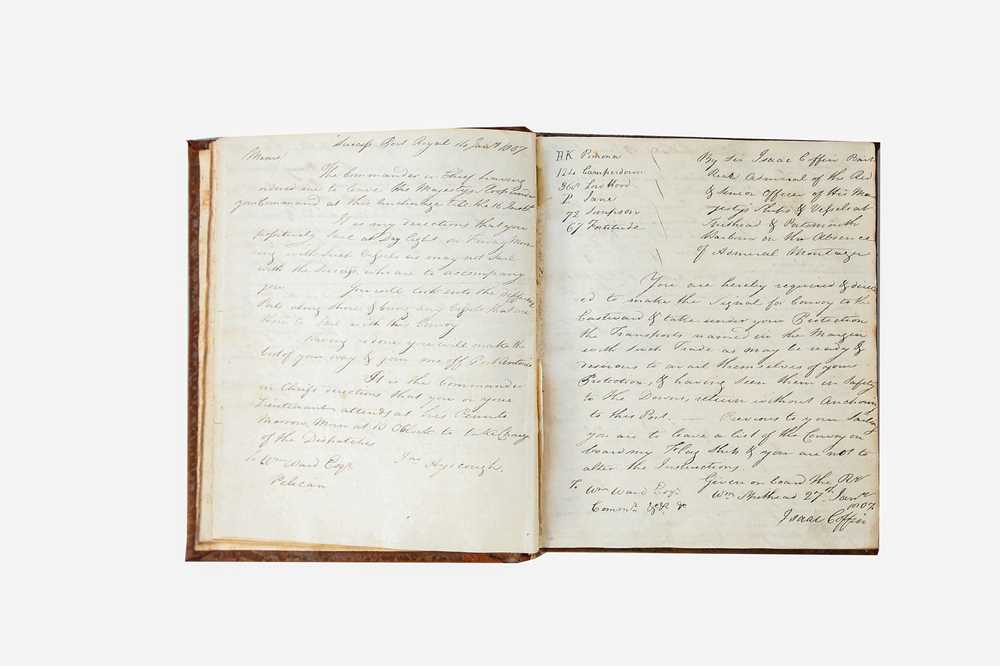 Success Port Royal 14 Jany 1807
Memo
The Commander in Chief having
ordered me to leave His Majestys Sloop under
your Command at this anchorage till the 16 Inst
It is my directions that you
positively Sail at Day light on Friday Morn
ing with such Vessels as may not Sail
with the Success who are to accompany
you You will look into the different
Ports along shore & bring any Vessels that are
there to Sail with this Convoy
Having so done you will make the
best of your way & join me off Port Antonio
It is the Commander
in Chiefs directions that you or your
Lieutenant attends at his Penn to
Morrow Morn at 10 OClock to take Charge
of the Dispatches
Jn Ayscough
To Wm Ward Esqr
Pelican
AK Pomona
124 Camperdown
368 Ld Hood
P Jane
72 Simpson
67 Fortitude
By Sir Isaac Coffin Bart
Rear Admiral of the Red
& Senior Officer of His Ma
jestys Ships & Vessels at
Spithead & Portsmouth
Harbour in the Absence
of Admiral Montague
You are hereby required & direct
ed to make the Signal for Convoy to the
Eastward & take under your Protection
the Transports named in the Margin
with such Trade as may be ready &
desirous to avail themselves of your
Protection, & having seen them in Safety
to the Downs return without Anchoring
to this Port. — Previous to your Sailing
you are to leave a list of the Convoy on
board my Flag Ship & you are not to
alter the Instructions.
Given on board the Rl
Wm Spithead 27th Jany
1807
Isaac Coffin
To Wm Ward Esqr
Comr &c &c